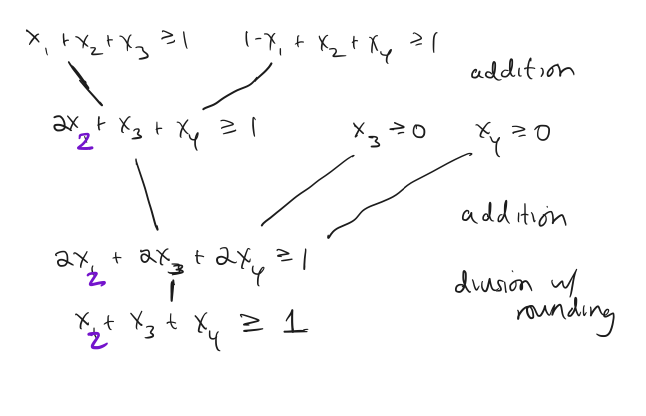 x₁ + x₂ + x₃ ≥ 1 1-x₁ + x₂ + x₄ ≥ 1
addition
2x₂ + x₃ + x₄ ≥ 1 x₃ ≥ 0 x₄ ≥ 0
addition
2x₂ + 2x₃ + 2x₄ ≥ 1
division w/
rounding
x₂ + x₃ + x₄ ≥ 1